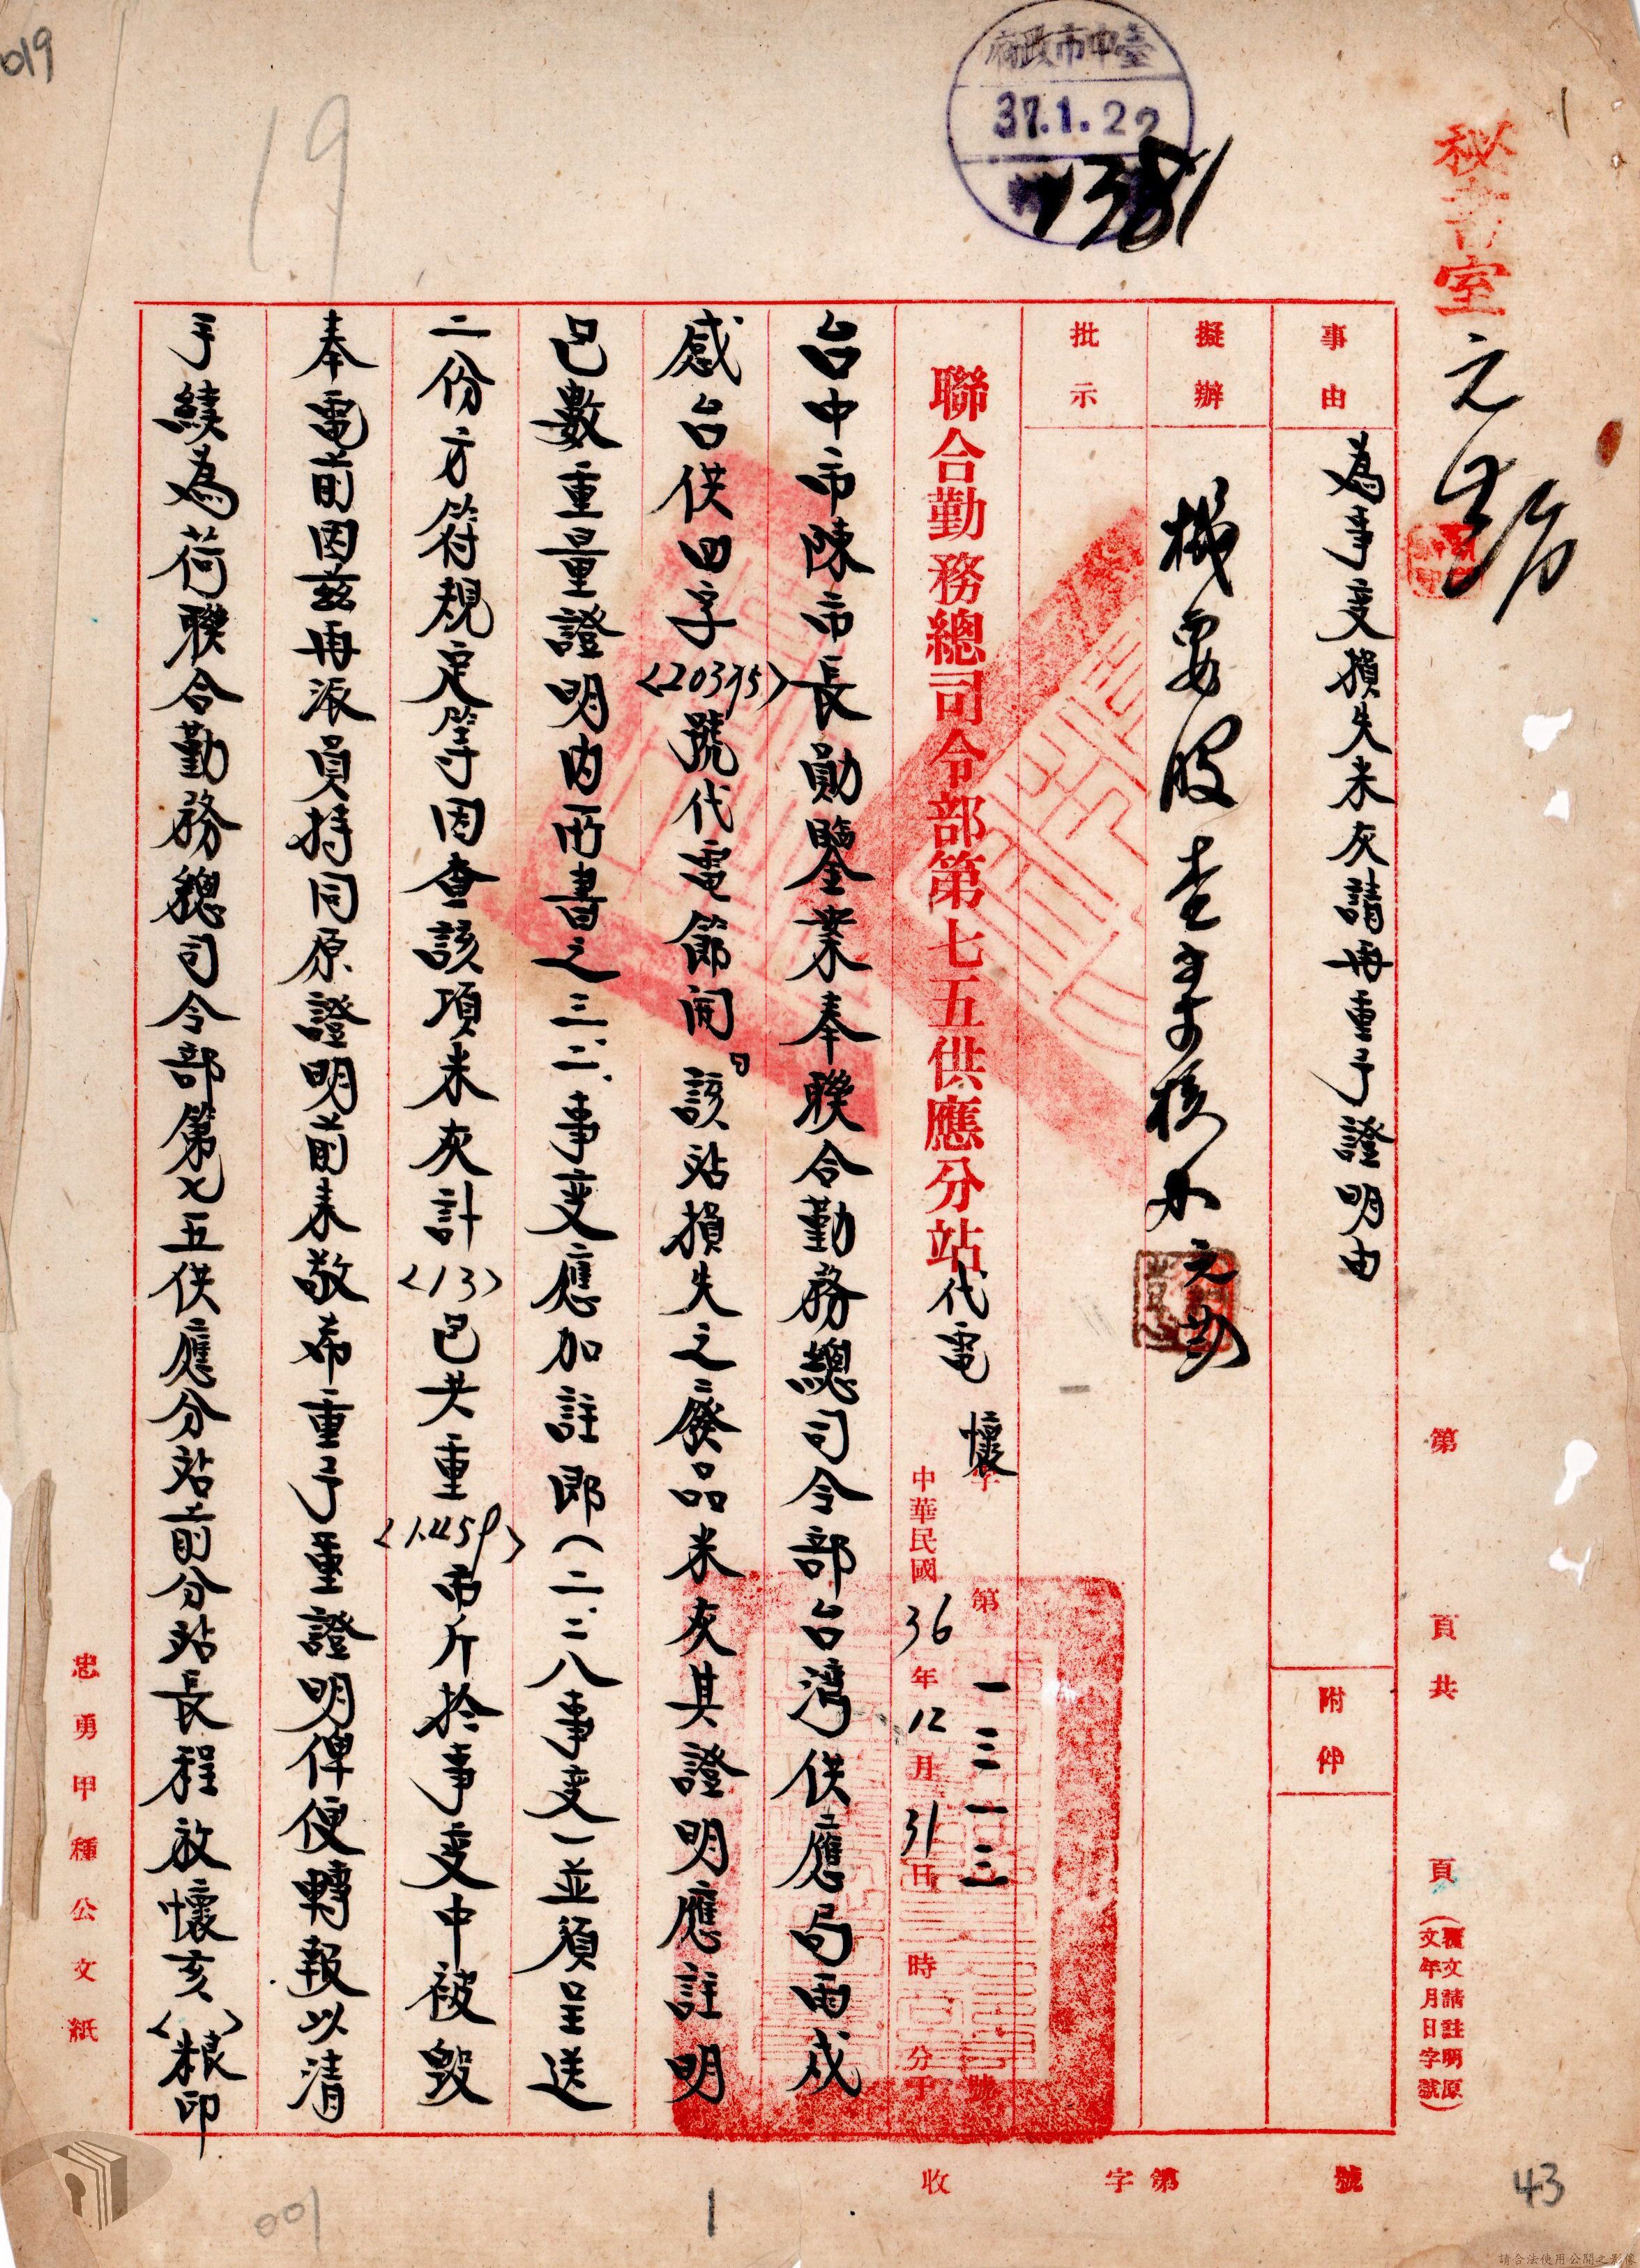 019
19
臺中市政府
37.1.22
1381
秘書室
元
事由
為事变損失米灰請再重予證明由
附件
擬辦
機要股查案核办
批示
聯合勤務總司令部第七五供應分站代電
懷字第一三一三號
中華民國36年12月31日時分于
台中市陳市長勛鑒業奉聯合勤務總司令部台灣供應局雨戍
感台供四字<20395>號代電節開「該站損失之廢品米灰其證明應註明
巴數重量證明內所書之三.二.事变應加註郎(二.二八事变一並須呈送
二份方符規定等因查該項米灰計<13>巴共重<1.459>市斤於事变中被毀
奉電前因茲再派員持同原證明前来敬希重予重證明俾便轉報以清
手續為荷聯合勤務總司令部第七五供應分站前分站長程放懷亥< >粮印
第 頁共 頁
(覆文請註明原
文年月日字號)
忠勇甲種公文紙
收 字第 號
43
001
1
請合法使用公開之影像